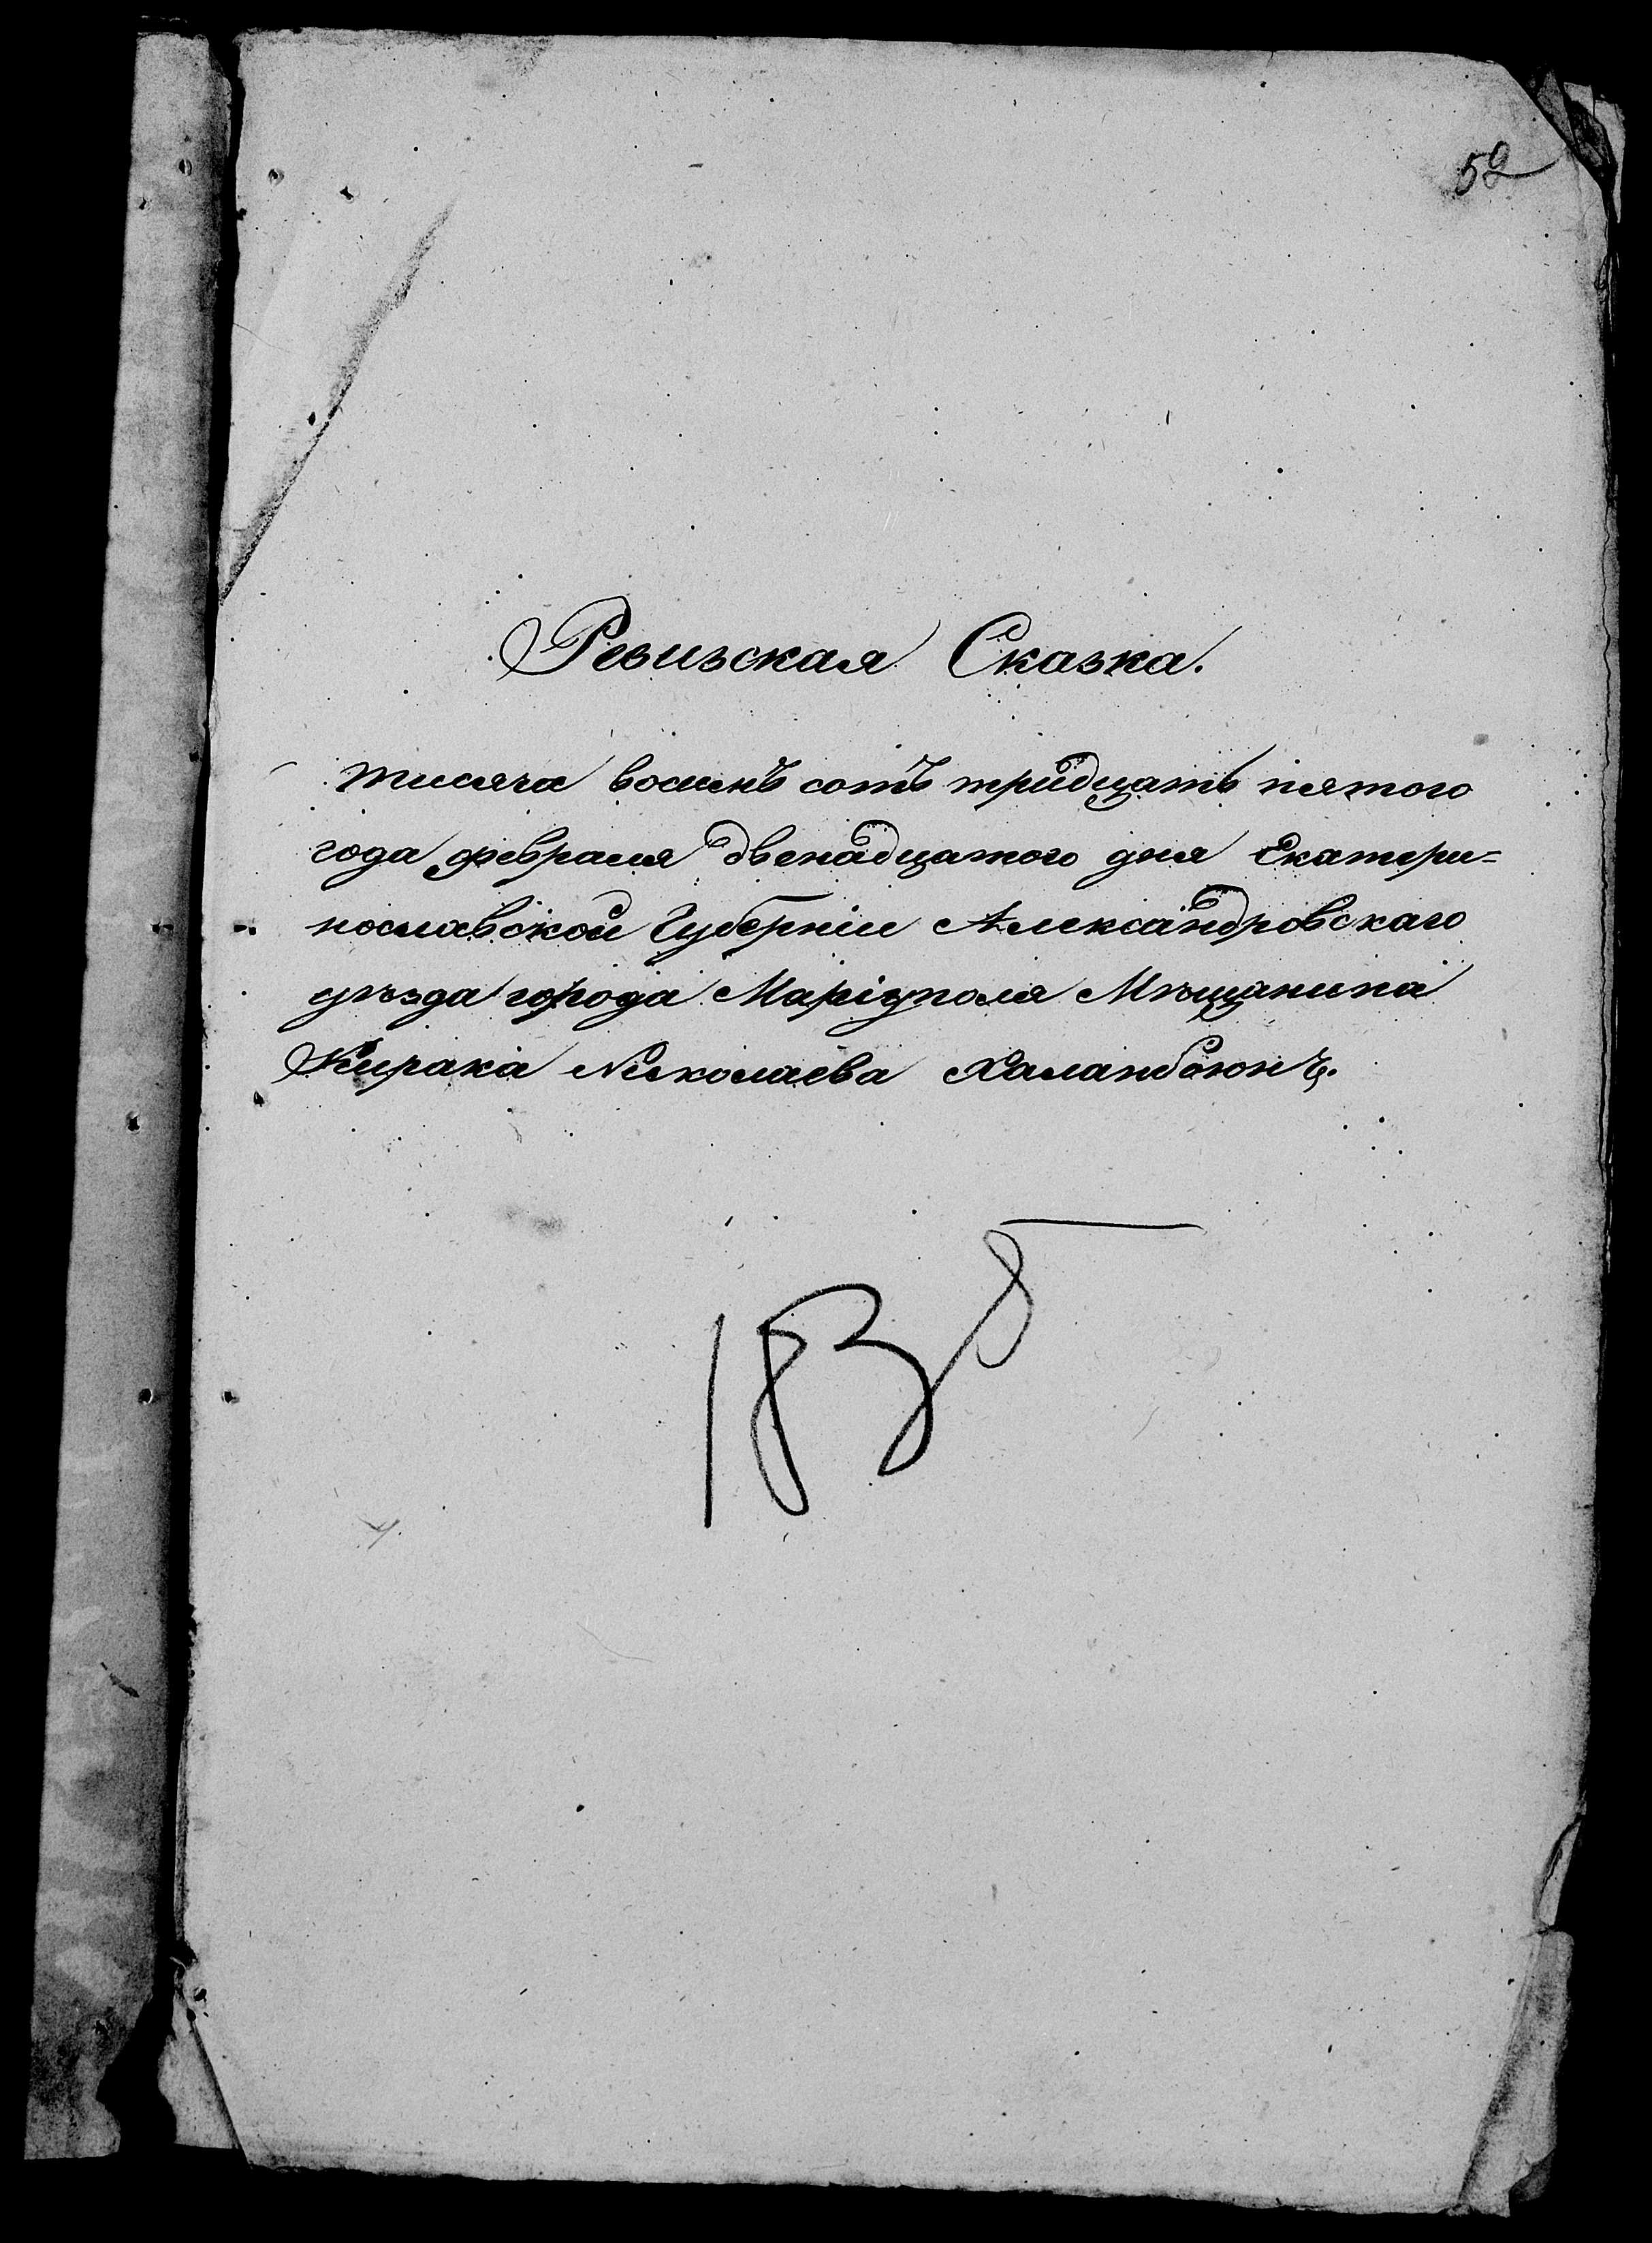 52
Ревизская Сказка.
тисяча восемь сотъ тридцать пятого
года февраля двенадцатого дня Екатери=
нославской Губерніи Александровскаго
уѣзда города Маріуполя Мѣщанина
Кирака Николаева
1835